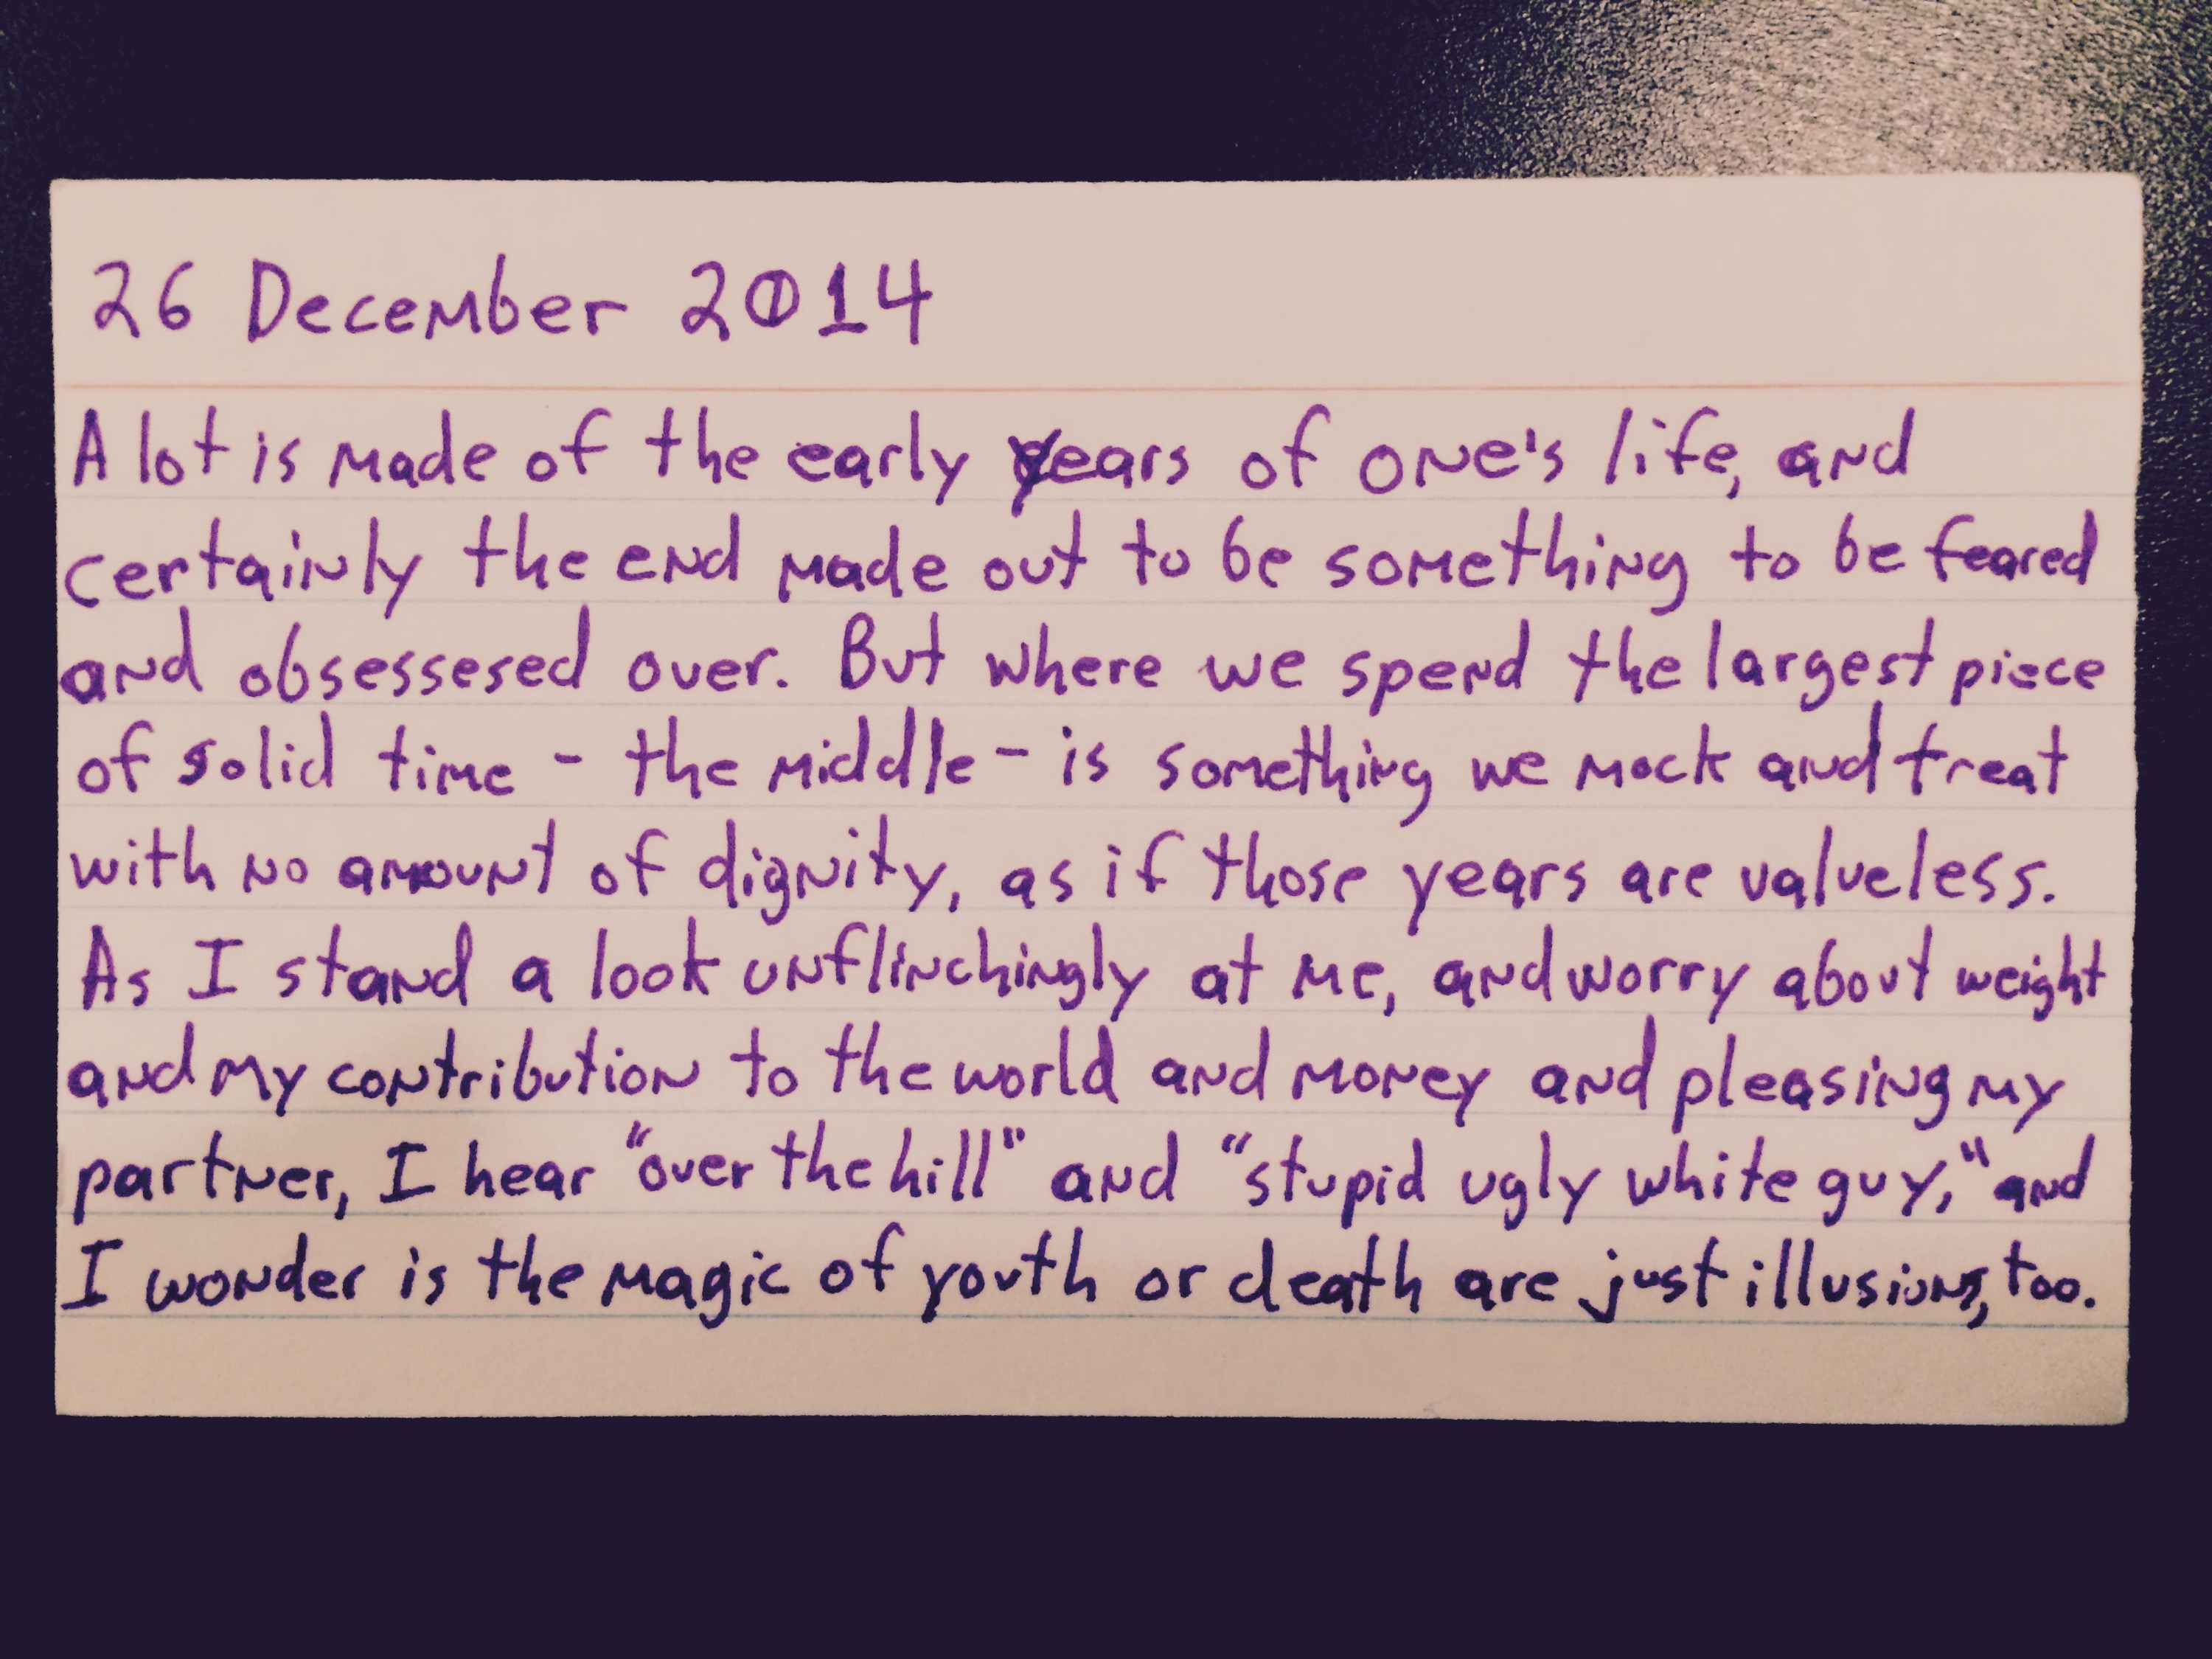 26 December 2014
A lot is made of the early years of one's life, and
certainly the end made out to be something to be feared
and obsessesed over. But where we spend the largest piece
of solid time - the middle - is something we mock and treat
with no amount of dignity, as if those years are valueless.
As I stand a look unflinchingly at me, and worry about weight
and my contribution to the world and money and pleasing my
partner, I hear "over the hill" and "stupid ugly white guy," and
I wonder is the magic of youth or death are just illusions, too.